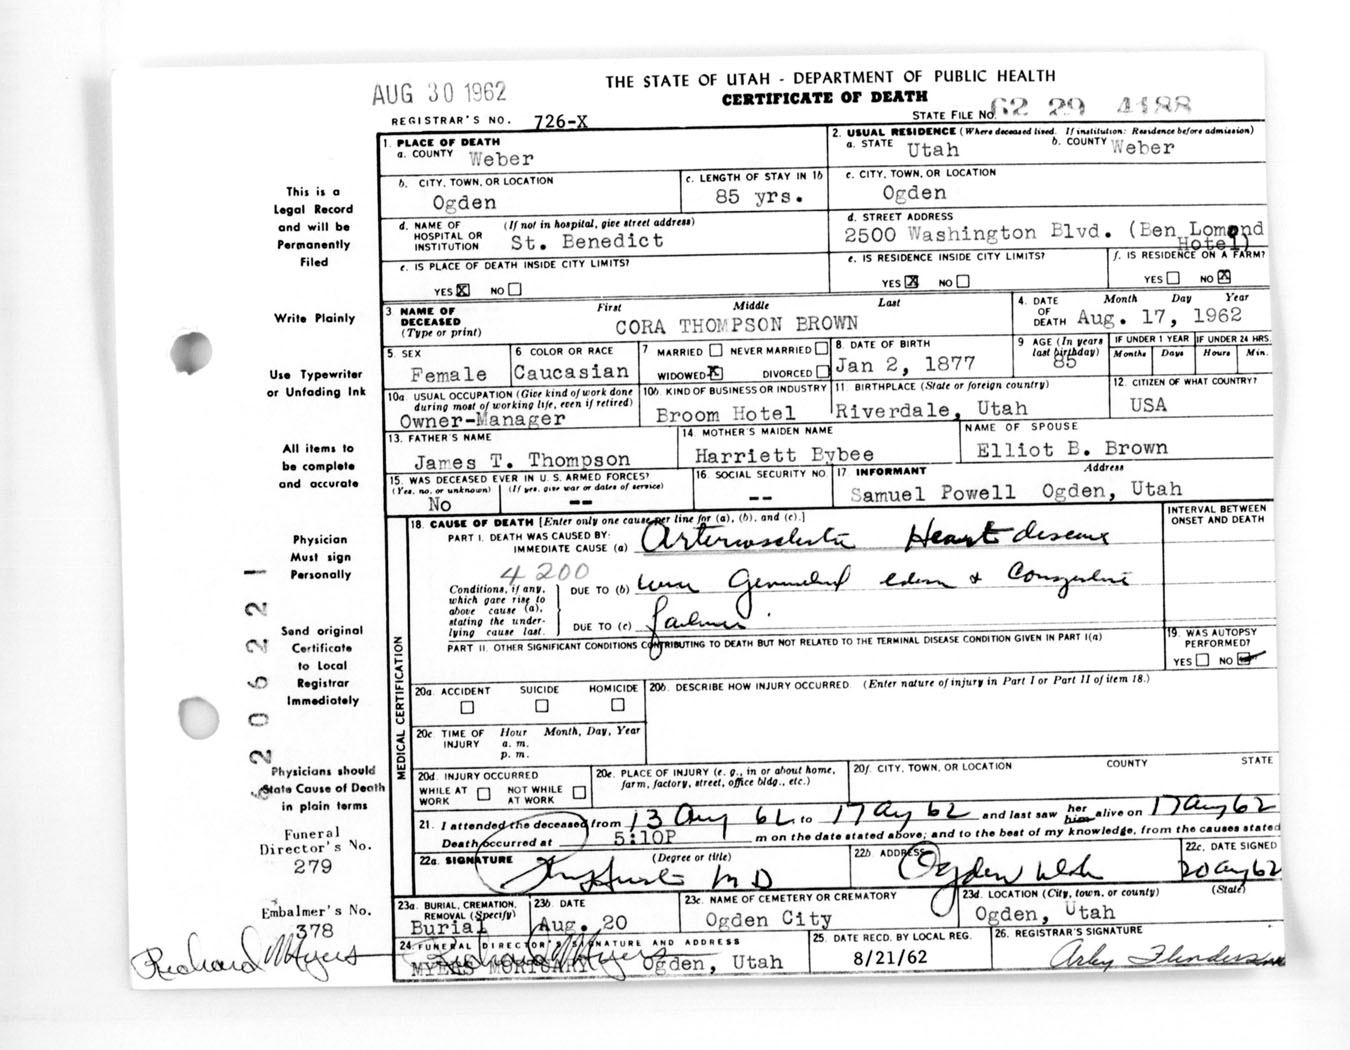 AUG 30 1962
THE STATE OF UTAH - DEPARTMENT OF PUBLIC HEALTH
CERTIFICATE OF DEATH
REGISTRAR'S NO. 726-X
STATE FILE NO. 62 29 4188
1. PLACE OF DEATH
a. COUNTY Weber
2. USUAL RESIDENCE (Where deceased lived. If institution: Residence before admission)
a. STATE Utah b. COUNTY Weber
b. CITY, TOWN, OR LOCATION
Ogden
c. LENGTH OF STAY IN 1b
85 yrs.
c. CITY, TOWN, OR LOCATION
Ogden
d. NAME OF HOSPITAL OR INSTITUTION (If not in hospital, give street address)
St. Benedict
d. STREET ADDRESS
2500 Washington Blvd. (Ben Lomond Hotel)
e. IS PLACE OF DEATH INSIDE CITY LIMITS?
YES X NO
e. IS RESIDENCE INSIDE CITY LIMITS?
YES X NO
f. IS RESIDENCE ON A FARM?
YES NO X
3 NAME OF DECEASED (Type or print)
First Middle Last
CORA THOMPSON BROWN
4. DATE OF DEATH Month Day Year
Aug. 17, 1962
5. SEX
Female
6 COLOR OR RACE
Caucasian
7 MARRIED NEVER MARRIED
WIDOWED X DIVORCED
8 DATE OF BIRTH
Jan 2, 1877
9 AGE (In years last birthday)
85
IF UNDER 1 YEAR IF UNDER 24 HRS.
Months Days Hours Min.
10a. USUAL OCCUPATION (Give kind of work done during most of working life, even if retired)
Owner-Manager
10b. KIND OF BUSINESS OR INDUSTRY
Broom Hotel
11. BIRTHPLACE (State or foreign country)
Riverdale, Utah
12. CITIZEN OF WHAT COUNTRY?
USA
13. FATHER'S NAME
James T. Thompson
14. MOTHER'S MAIDEN NAME
Harriett Bybee
NAME OF SPOUSE
Elliot B. Brown
15. WAS DECEASED EVER IN U.S. ARMED FORCES?
(Yes, no, or unknown) (If yes, give war or dates of service)
No --
16. SOCIAL SECURITY NO.
--
17. INFORMANT Address
Samuel Powell Ogden, Utah
MEDICAL CERTIFICATION
18. CAUSE OF DEATH [Enter only one cause per line for (a), (b), and (c).]
INTERVAL BETWEEN ONSET AND DEATH
PART I. DEATH WAS CAUSED BY:
IMMEDIATE CAUSE (a) Heart disease
4200
Conditions, if any, which gave rise to above cause (a), stating the underlying cause last.
DUE TO (b) edema &
DUE TO (c) failure
PART II. OTHER SIGNIFICANT CONDITIONS CONTRIBUTING TO DEATH BUT NOT RELATED TO THE TERMINAL DISEASE CONDITION GIVEN IN PART I(a)
19. WAS AUTOPSY PERFORMED?
YES NO
20a. ACCIDENT SUICIDE HOMICIDE
20b. DESCRIBE HOW INJURY OCCURRED. (Enter nature of injury in Part I or Part II of item 18.)
20c TIME OF INJURY Hour Month, Day, Year
a. m.
p. m.
20d. INJURY OCCURRED
WHILE AT WORK NOT WHILE AT WORK
20e. PLACE OF INJURY (e. g., in or about home, farm, factory, street, office bldg., etc.)
20f. CITY, TOWN, OR LOCATION COUNTY STATE
21. I attended the deceased from 13 Aug 62 to 17 Aug 62 and last saw her him alive on 17 Aug 62
Death occurred at 5:10P m on the date stated above; and to the best of my knowledge, from the causes stated
22a. SIGNATURE (Degree or title)
M D
22b. ADDRESS
Ogden Utah
22c. DATE SIGNED
20 Aug 62
23a. BURIAL, CREMATION, REMOVAL (Specify)
Burial
23b. DATE
Aug. 20
23c. NAME OF CEMETERY OR CREMATORY
Ogden City
23d. LOCATION (City, town, or county) (State)
Ogden, Utah
24. FUNERAL DIRECTOR'S SIGNATURE AND ADDRESS
MYERS MORTUARY Ogden, Utah
25. DATE RECD. BY LOCAL REG.
8/21/62
26. REGISTRAR'S SIGNATURE
This is a
Legal Record
and will be
Permanently
Filed
Write Plainly
Use Typewriter
or Unfading Ink
All items to
be complete
and accurate
Physician
Must sign
Personally
Send original
Certificate
to Local
Registrar
Immediately
Physicians should
State Cause of Death
in plain terms
Funeral
Director's No.
279
Embalmer's No.
378
Richard Myers
2206221